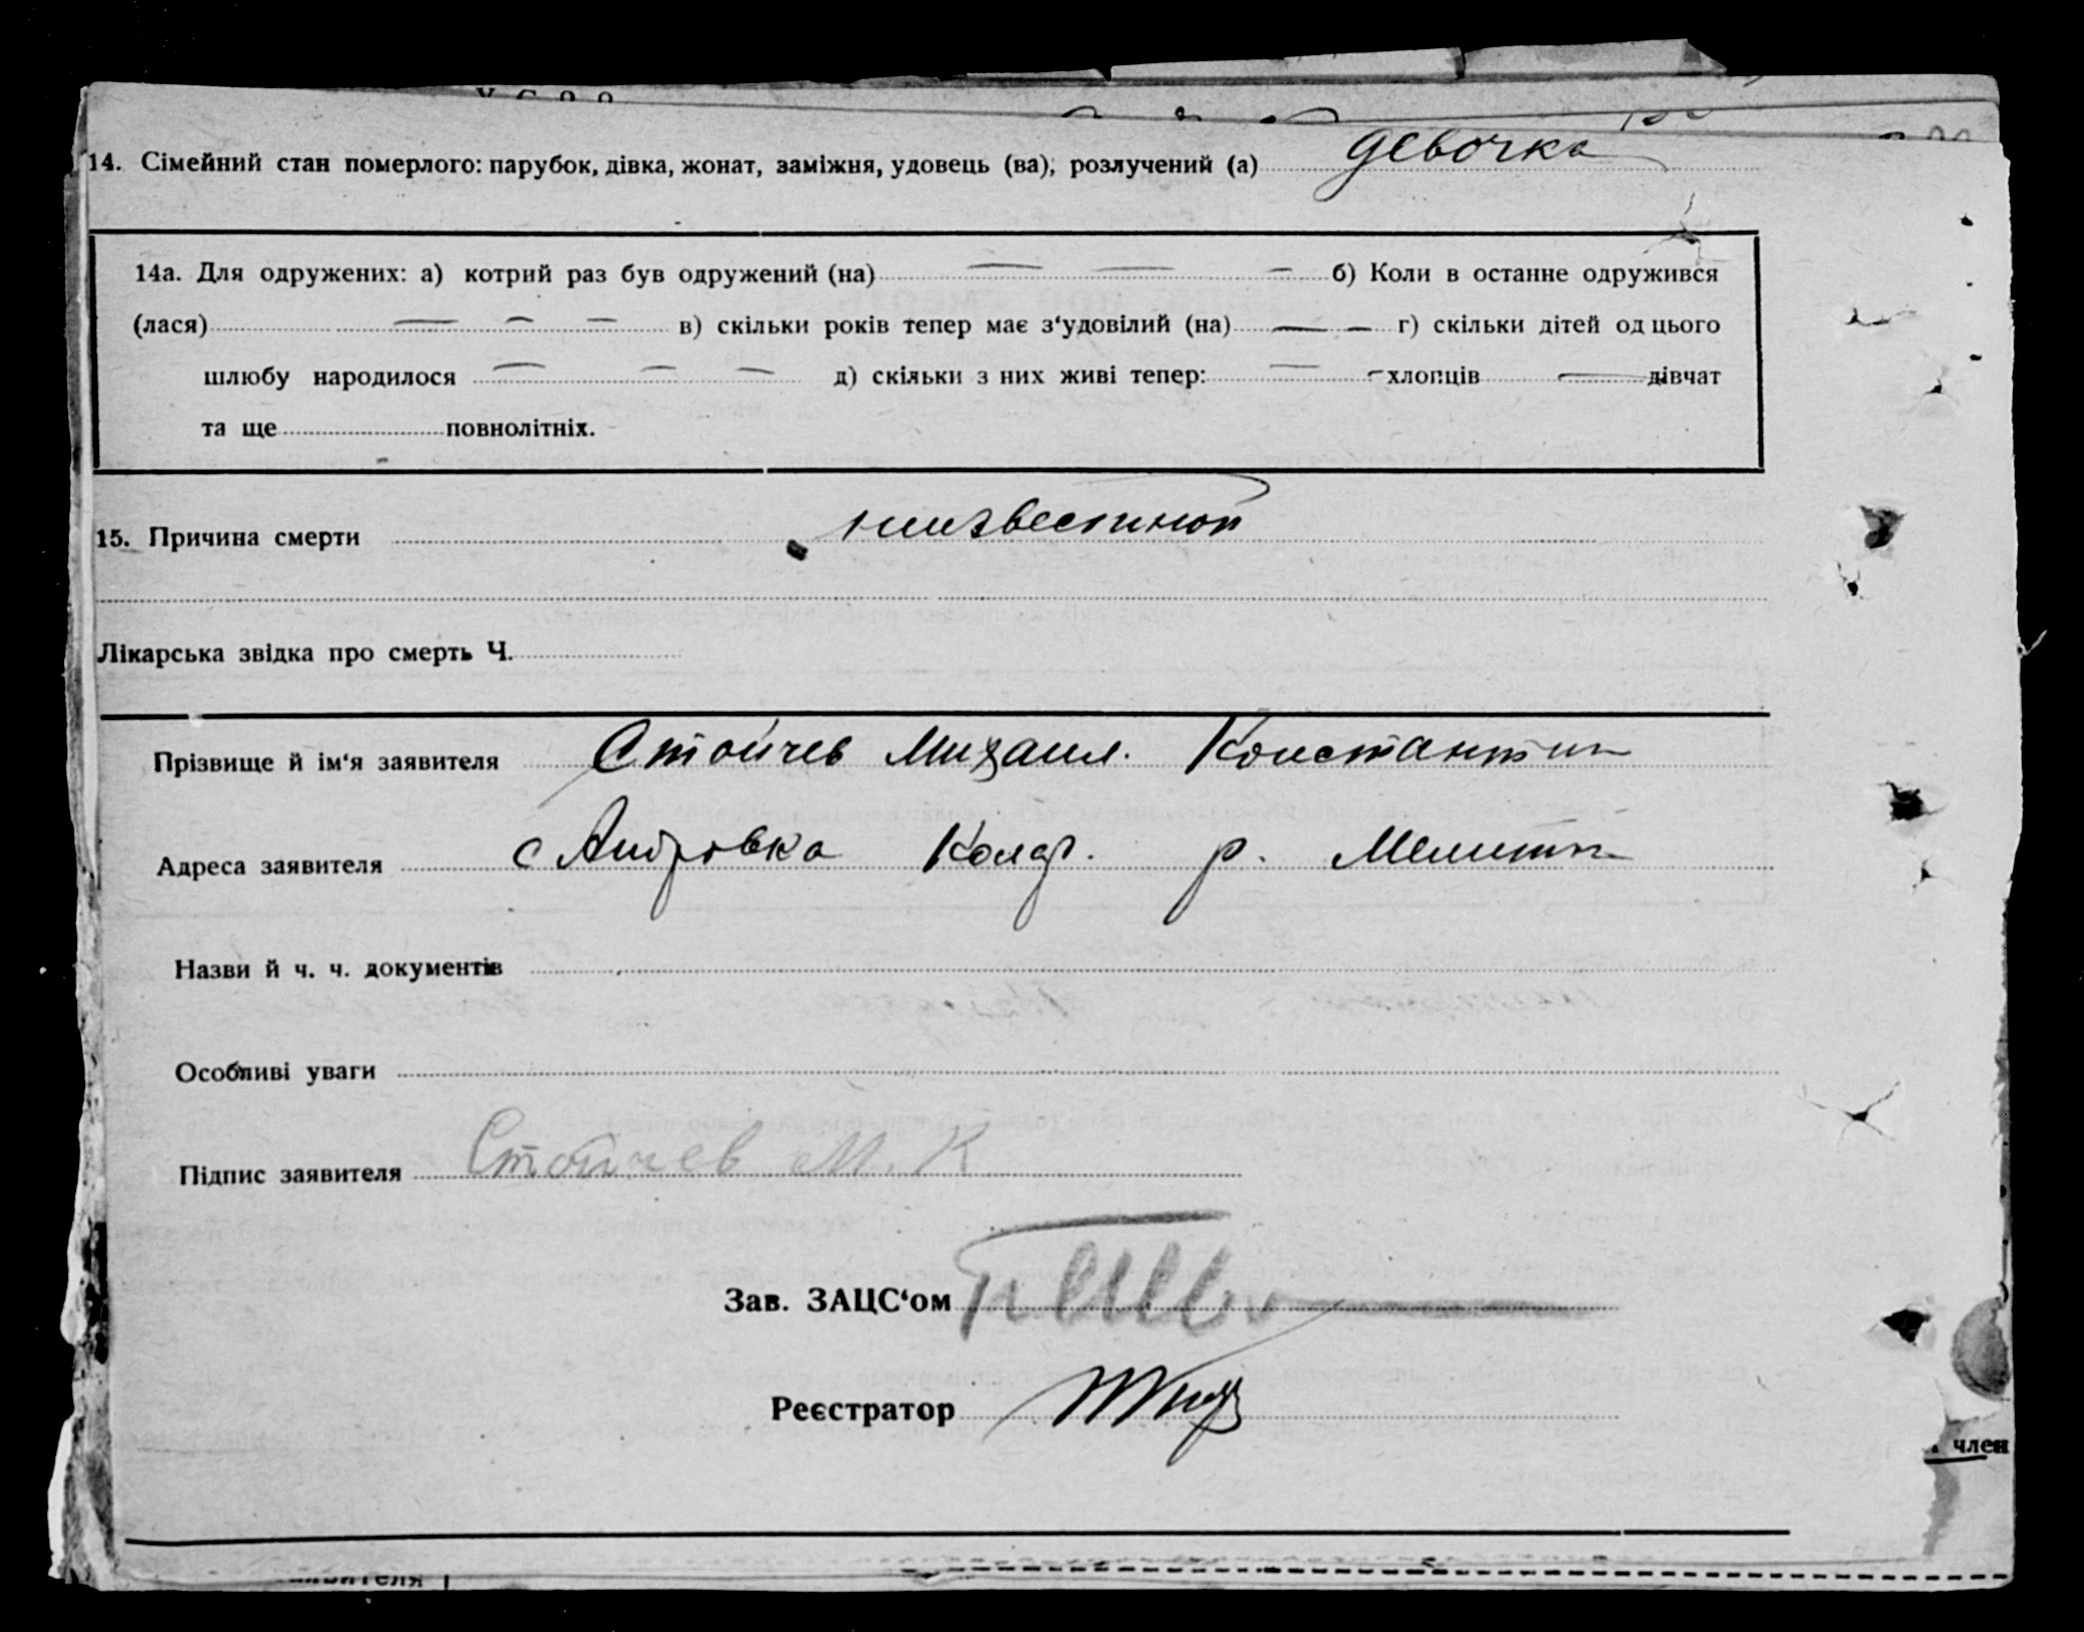 14. Сімейний стан померлого: парубок, дівка, жонат, заміжня, удовець (ва), розлучений (а) девочка
14а. Для одружених: а) котрий раз був одружений (на) — — — б) Коли в останне одружився
(лася) — — — в) скільки років тепер має з‘удовілий (на) — — г) скільки дітей од цього
шлюбу народилося — — — д) скільки з них живі тепер: — — хлопців — дівчат
та ще повнолітніх.
15. Причина смерти
Лікарська звідка про смерть Ч.
Прізвище й ім‘я заявителя Стойчев Михаил. Константин
Адреса заявителя с Андровка Колар. р. Мелитоп
Назви й ч. ч. документів
Особливі уваги
Підпис заявителя Стойчев М. К
Зав. ЗАЦС‘ом
Реєстратор
член